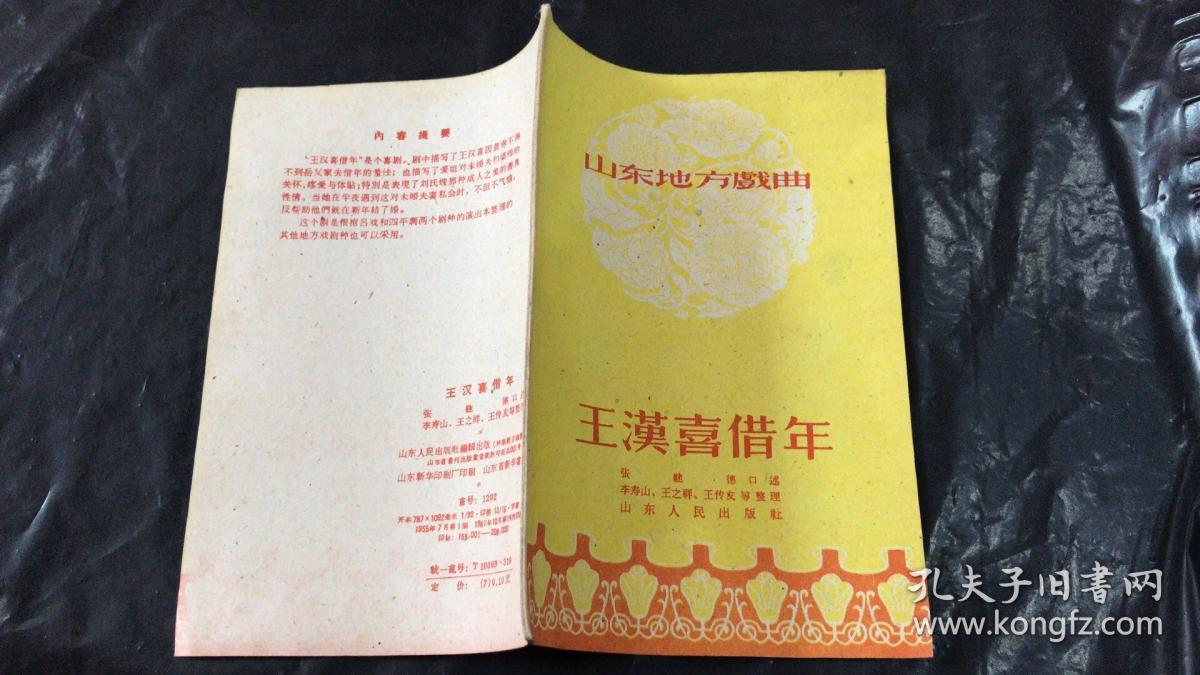 山东地方戲曲
王漢喜借年
张 德口述
李寿山、王之祥、王传友等整理
山东人民出版社
内容提要
“王汉喜借年”是个喜剧。剧中描写了王汉喜因貧寒不得
不到岳父家去借年的; 也描写了爱姐对未婚夫
关怀,疼爱与体贴; 特別是表現了刘氏嫂那种成人之美的善良
性情。当她在午夜遇到这对未婚夫妻私会时, 不但不气愤,
反帮助他們就在新年結了婚。
这个剧是根据吕戏和四平調两个剧种的演出本整理的
其他地方戏剧种也可以采用。
王汉喜借年
张 德口述
李寿山、王之祥、王传友等整
山东人民出版社編輯出版
山东新华印刷厂印刷 山东省新华書
書号: 1292
开本 787×1092毫米 1/32・印張
1955年7月第1版 1957年10月
印数:
統一書号: T
定 价: (7)0.10元
孔夫子旧书网
www.kongfz.com